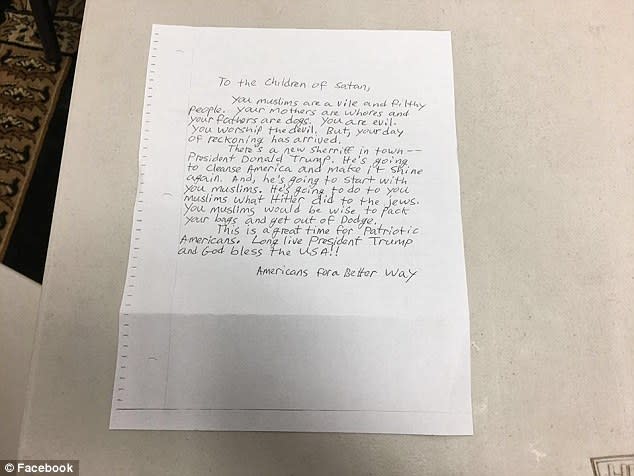 To the Children of Satan,
You muslims are a vile and filthy
people. Your mothers are whores and
your fathers are dogs. You are evil.
You worship the devil. But, your day
of reckoning has arrived.
There's a new Sherriff in town --
President Donald Trump. He's going
to cleanse America and make it shine
again. And, he's going to start with
you muslims. He's going to do to you
muslims what Hitler did to the jews.
You muslims would be wise to pack
your bags and get out of Dodge.
This is a great time for Patriotic
Americans. Long live President Trump
and God bless the USA!!
Americans for a Better Way
© Facebook